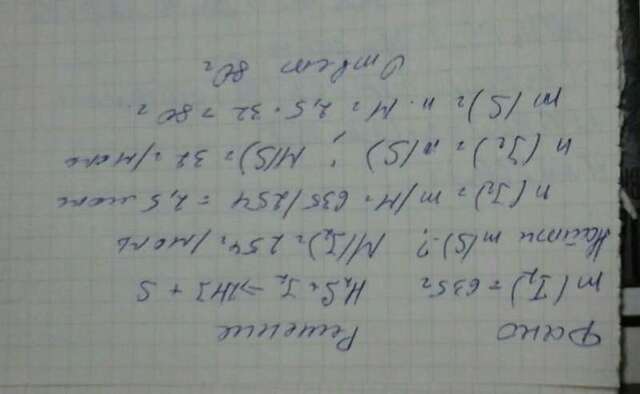 Дано Решение
m(I₂) = 635г H₂S + I₂ → 2HI + S
Найти m(S)-? M(I₂) = 254г/моль
n(I₂) = m/M = 635/254 = 2,5 моль
n(I₂) = n(S); M(S) = 32г/моль
m(S) = n·M = 2,5·32 = 80г.
Ответ 80г